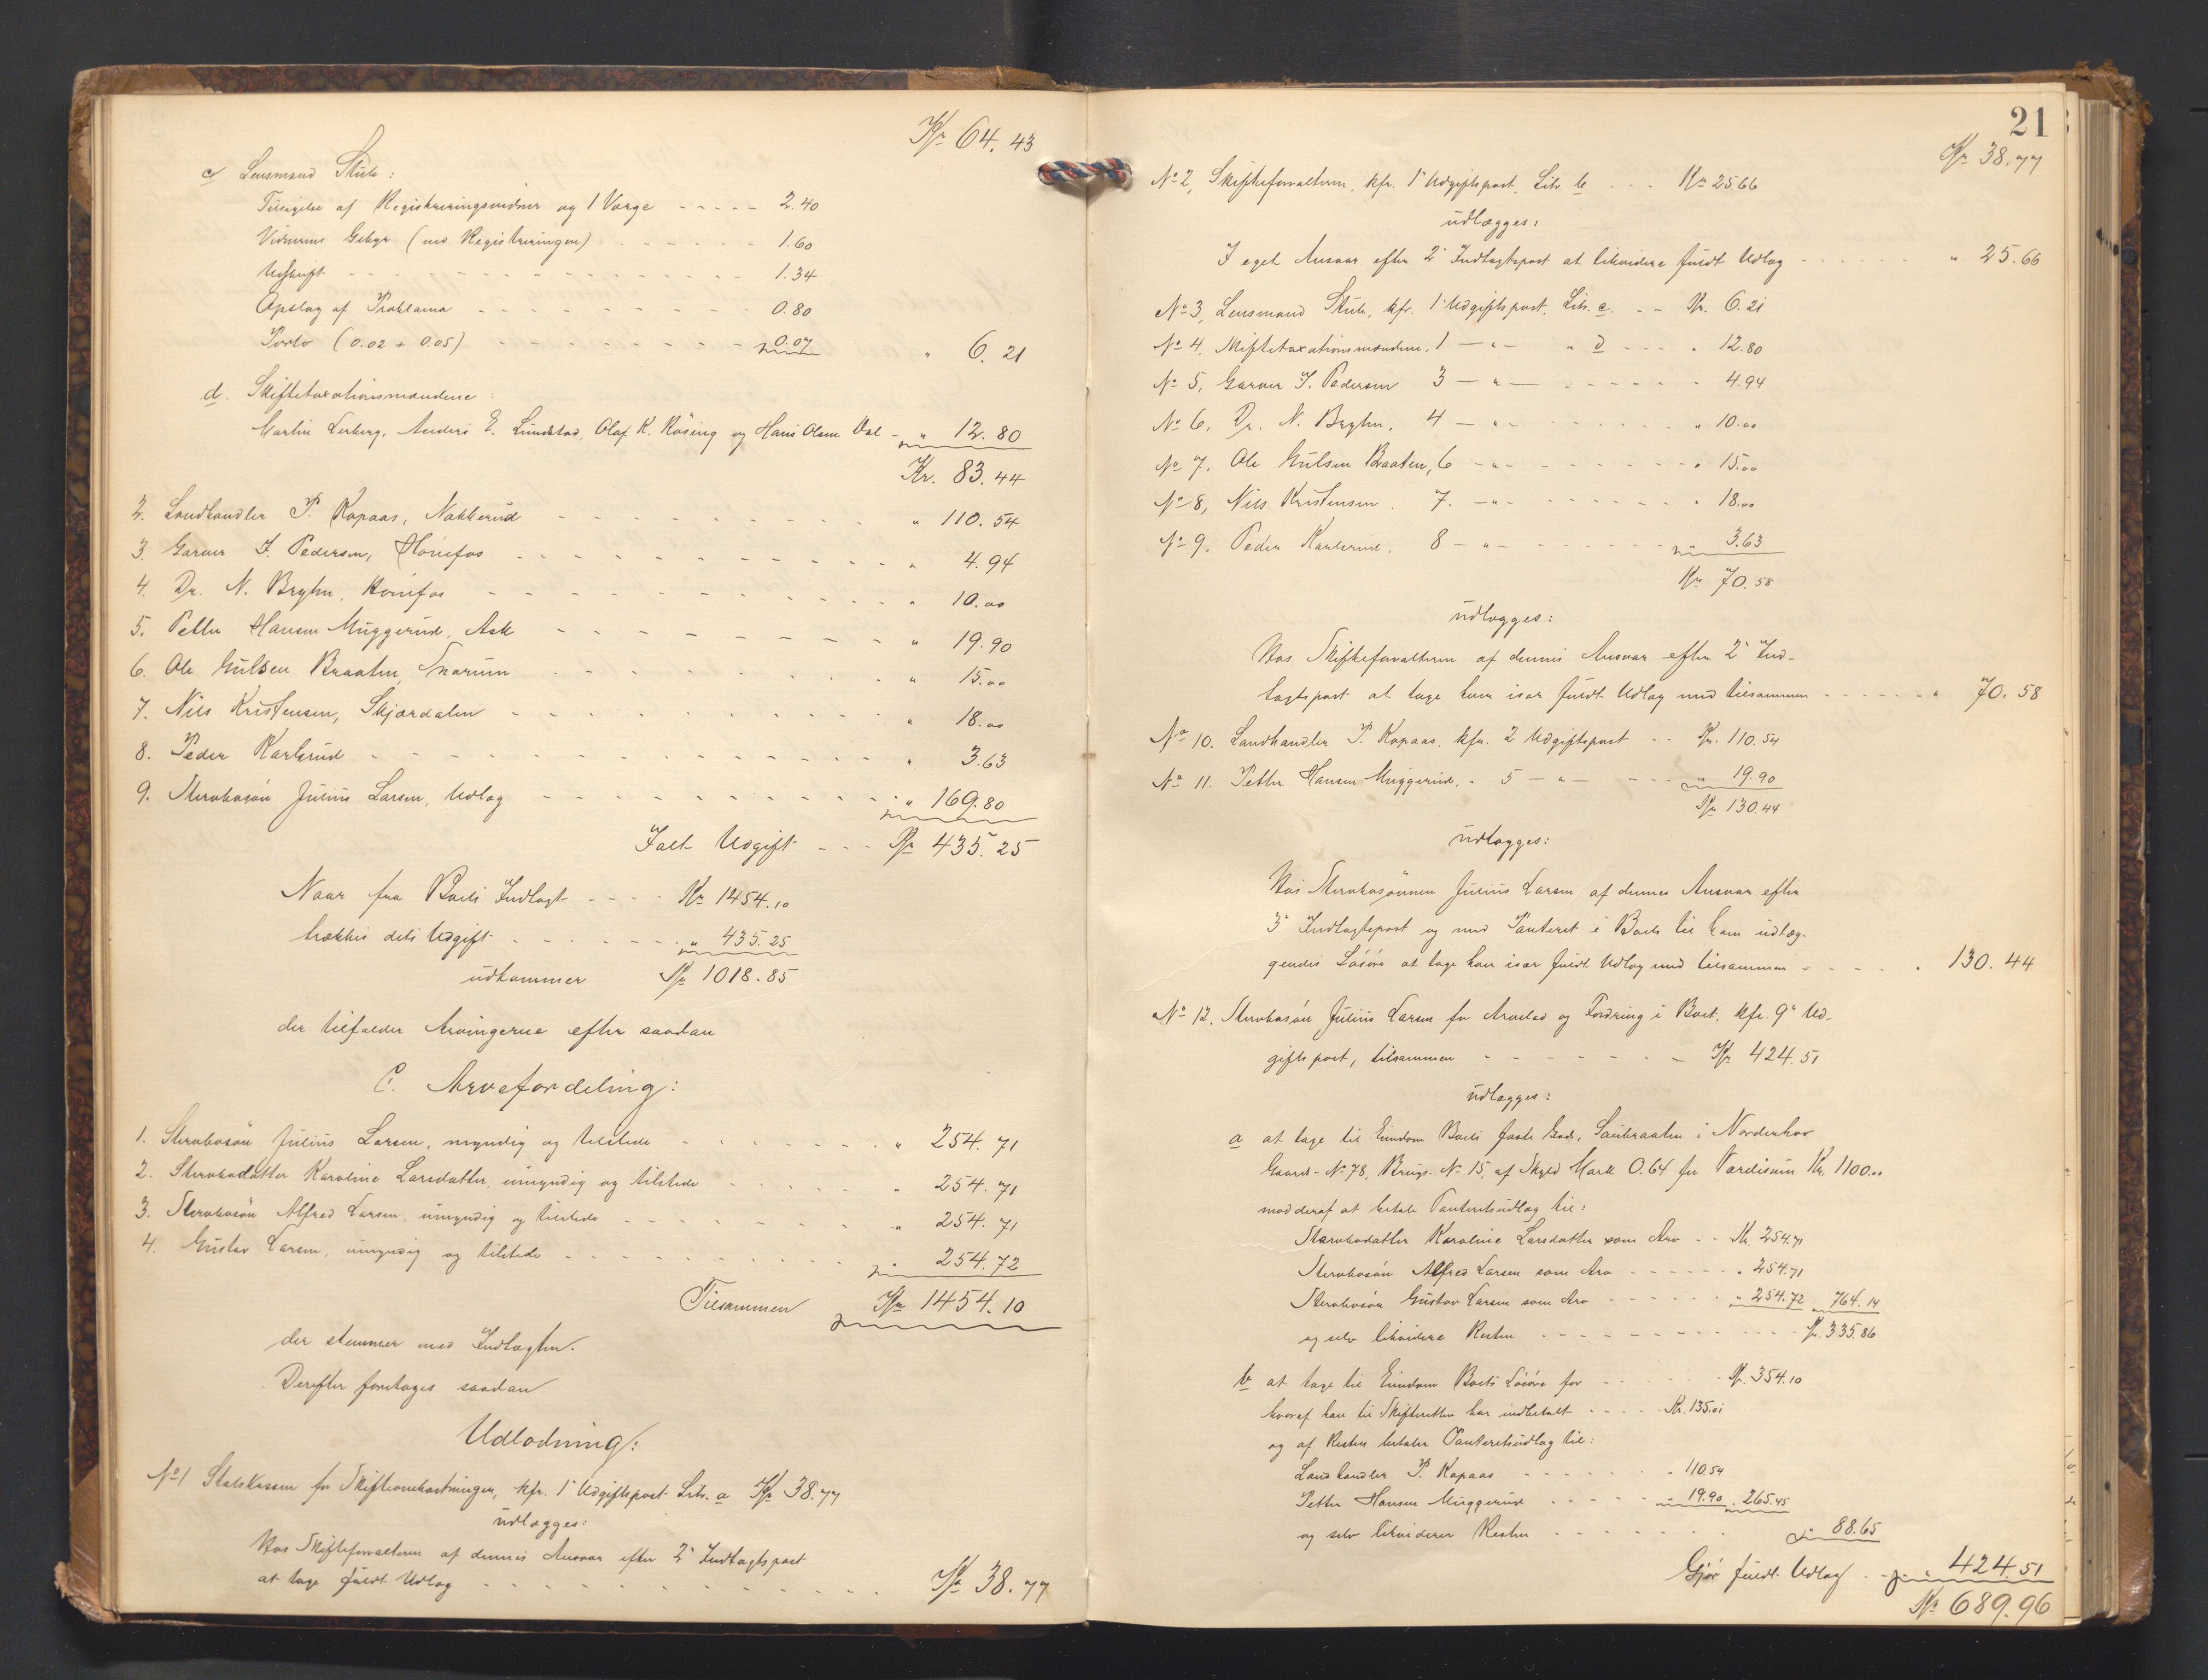 Kr 64.43
c) Lensmand Stub:
Tilsigelse af Registreringsvidner og 1 Værge - - - - - 2.40
Vidnernes Gebyr (ved Registreringen) - - - - - - 1.60
Udskrift - - - - - - - - - - - - 1.34
Opslag af Proklama - - - - - - - - - 0.80
Porto (0.02 + 0.05) - - - - - - - - - 0.07 " 6.21
d. Skiftetaxationsmændene:
Martin Lerberg, Anders E. Lundstad, Olaf K. Røsing og Hans Olsen - " 12.80
Kr. 83.44
2. Landhandler P. Kopaas, Nakkerud - - - - - - - " 110.54
3. Garver J. Pedersen, Hønefos - - - - - - - - " 4.94
4. Dr. N. Bryhn, Hønefos - - - - - - - - " 10.00
5. Petter Hansen Muggerud, Ask - - - - - - - - " 19.90
6. Ole Gulsen Braaten, Snarum - - - - - - - " 15.00
7. Nils Kristensen, Skjærdalen - - - - - - - " 18.00
8. Peder Karlsrud - - - - - - - - - - " 3.63
9. Stervbosøn Julius Larsen, Udlæg - - - - - - - " 169.80
Ialt Udgift - - - Kr 435.25
Naar fra Boets Indtægt - - - - Kr 1454.10
trækkes dets Udgift - - - - - " 435.25
udkommer Kr 1018.85
der tilfalder Arvingerne efter saadan
C. Arvefordeling:
1. Stervbosøn Julius Larsen, myndig og tilstede - - - - - " 254.71
2. Stervbodatter Karoline Larsdatter, umyndig og tilstede - - - - " 254.71
3. Stervbosøn Alfred Larsen, umyndig og tilstede - - - - - " 254.71
4. Gustav Larsen, umyndig og tilstede - - - - - - " 254.72
Tilsammen Kr 1454.10
der stemmer med Indtægten.
Derefter foretoges saadan
Udlodning:
No 1 Statskassen for Skifteomkostninger, kfr. 1' Udgiftspost Litr. a Kr 38.77
udlægges:
Hos Skifteforvalteren af dennes Ansvar efter 2' Indtægtspost
at tage fuldt Udlæg - - - - - - - - - - Kr 38.77
21
Kr 38.77
No 2, Skifteforvalteren, kfr. 1' Udgiftspost, Litr. b - - - Kr 25.66
udlægges:
I eget Ansvar efter 2' Indtægtspost at likvidere fuldt Udlæg - - - - - " 25.66
No 3, Lensmand Stub, kfr. 1' Udgiftspost, Litr. c. - - Kr. 6.21
No 4, Skiftetaxationsmændene, 1 — " — " d - - - " 12.80
No 5, Garver J. Pedersen 3 — " — - - - - - " 4.94
No 6, Dr. N. Bryhn, 4 — " - - - - - - " 10.00
No 7, Ole Gulsen Braaten, 6 — " - - - - - - - " 15.00
No 8, Nils Kristensen. 7. — " — - - - - - - 18.00
No 9, Peder Karlsrud, 8 — " — - - - - - - " 3.63
Kr 70.58
udlægges:
Hos Skifteforvalteren af dennes Ansvar efter 2' Ind-
tægtspost at tage hver især fuldt Udlæg med tilsammen - - - - - - " 70.58
No 10. Landhandler P. Kopaas, kfr. 2 Udgiftspost - - Kr. 110.54
No 11. Petter Hansen Muggerud, " 5 — " — - - - " 19.90
Kr 130.44
udlægges:
Hos Stervbosønnen Julius Larsen af dennes Ansvar efter
3' Indtægtspost og med Panteret i Boets til ham udlæg-
gendes Løsøre at tage hver især fuldt Udlæg med tilsammen - - - - " 130.44
No 12. Stervbosøn Julius Larsen for Arvelod og Fordring i Boet, kfr. 9' Ud-
giftspost, tilsammen - - - - - - - Kr 424.51
udlægges:
a at tage til Eiendom Boets faste Gods, Saubraaten i Norderhov
Gaards-No 78, Brugs-No 15, af Skyld Mark 0.64 for Værdisum Kr. 1100.00
mod deraf at betale Panteretsudlæg til:
Stervbodatter Karoline Larsdatter som Arv - - Kr. 254.71
Stervbosøn Alfred Larsen som Arv - - - - - - " 254.71
Stervbosøn Gustav Larsen som Arv - - - - - - " 254.72 " 764.14
og selv likvidere Resten - - - - - - - - Kr. 335.86
b at tage til Eiendom Boets Løsøre for - - - - - Kr. 354.10
hvoraf han til Skifteretten har indbetalt - - - - Kr. 135.01
og af Resten betaler Panteretsudlæg til:
Landhandler P. Kopaas - - - - - - " 110.54
Petter Hansen Muggerud - - - - - " 19.90 " 265.45
og selv likviderer Resten - - - - - - - " 88.65
Gjør fuldt Udlæg - - " 424.51
Kr 689.96